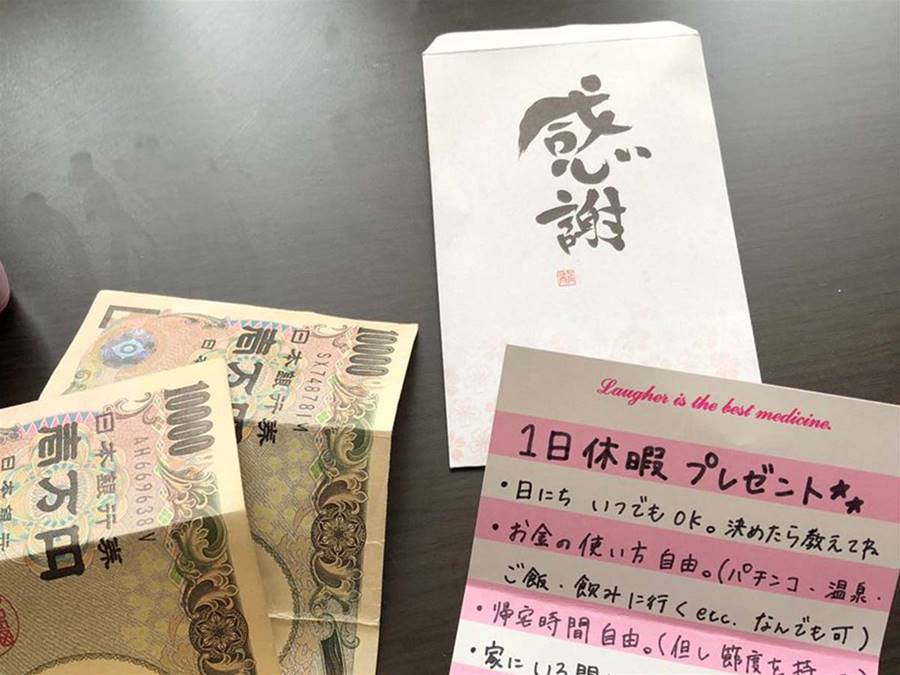 感謝
10000
日本銀行券
壱万円
SX748781M
日本銀
10000
日本銀行券
壱万円
AH669638V
日本銀行
Laugher is the best medicine.
1日休暇プレゼント★★
・日にち いつでもOK。決めたら教えてね
・お金の使い方 自由。(パチンコ、温泉・
ご飯・飲みに行くetc. なんでも可)
・帰宅時間自由。(但し節度を持
・家にいる